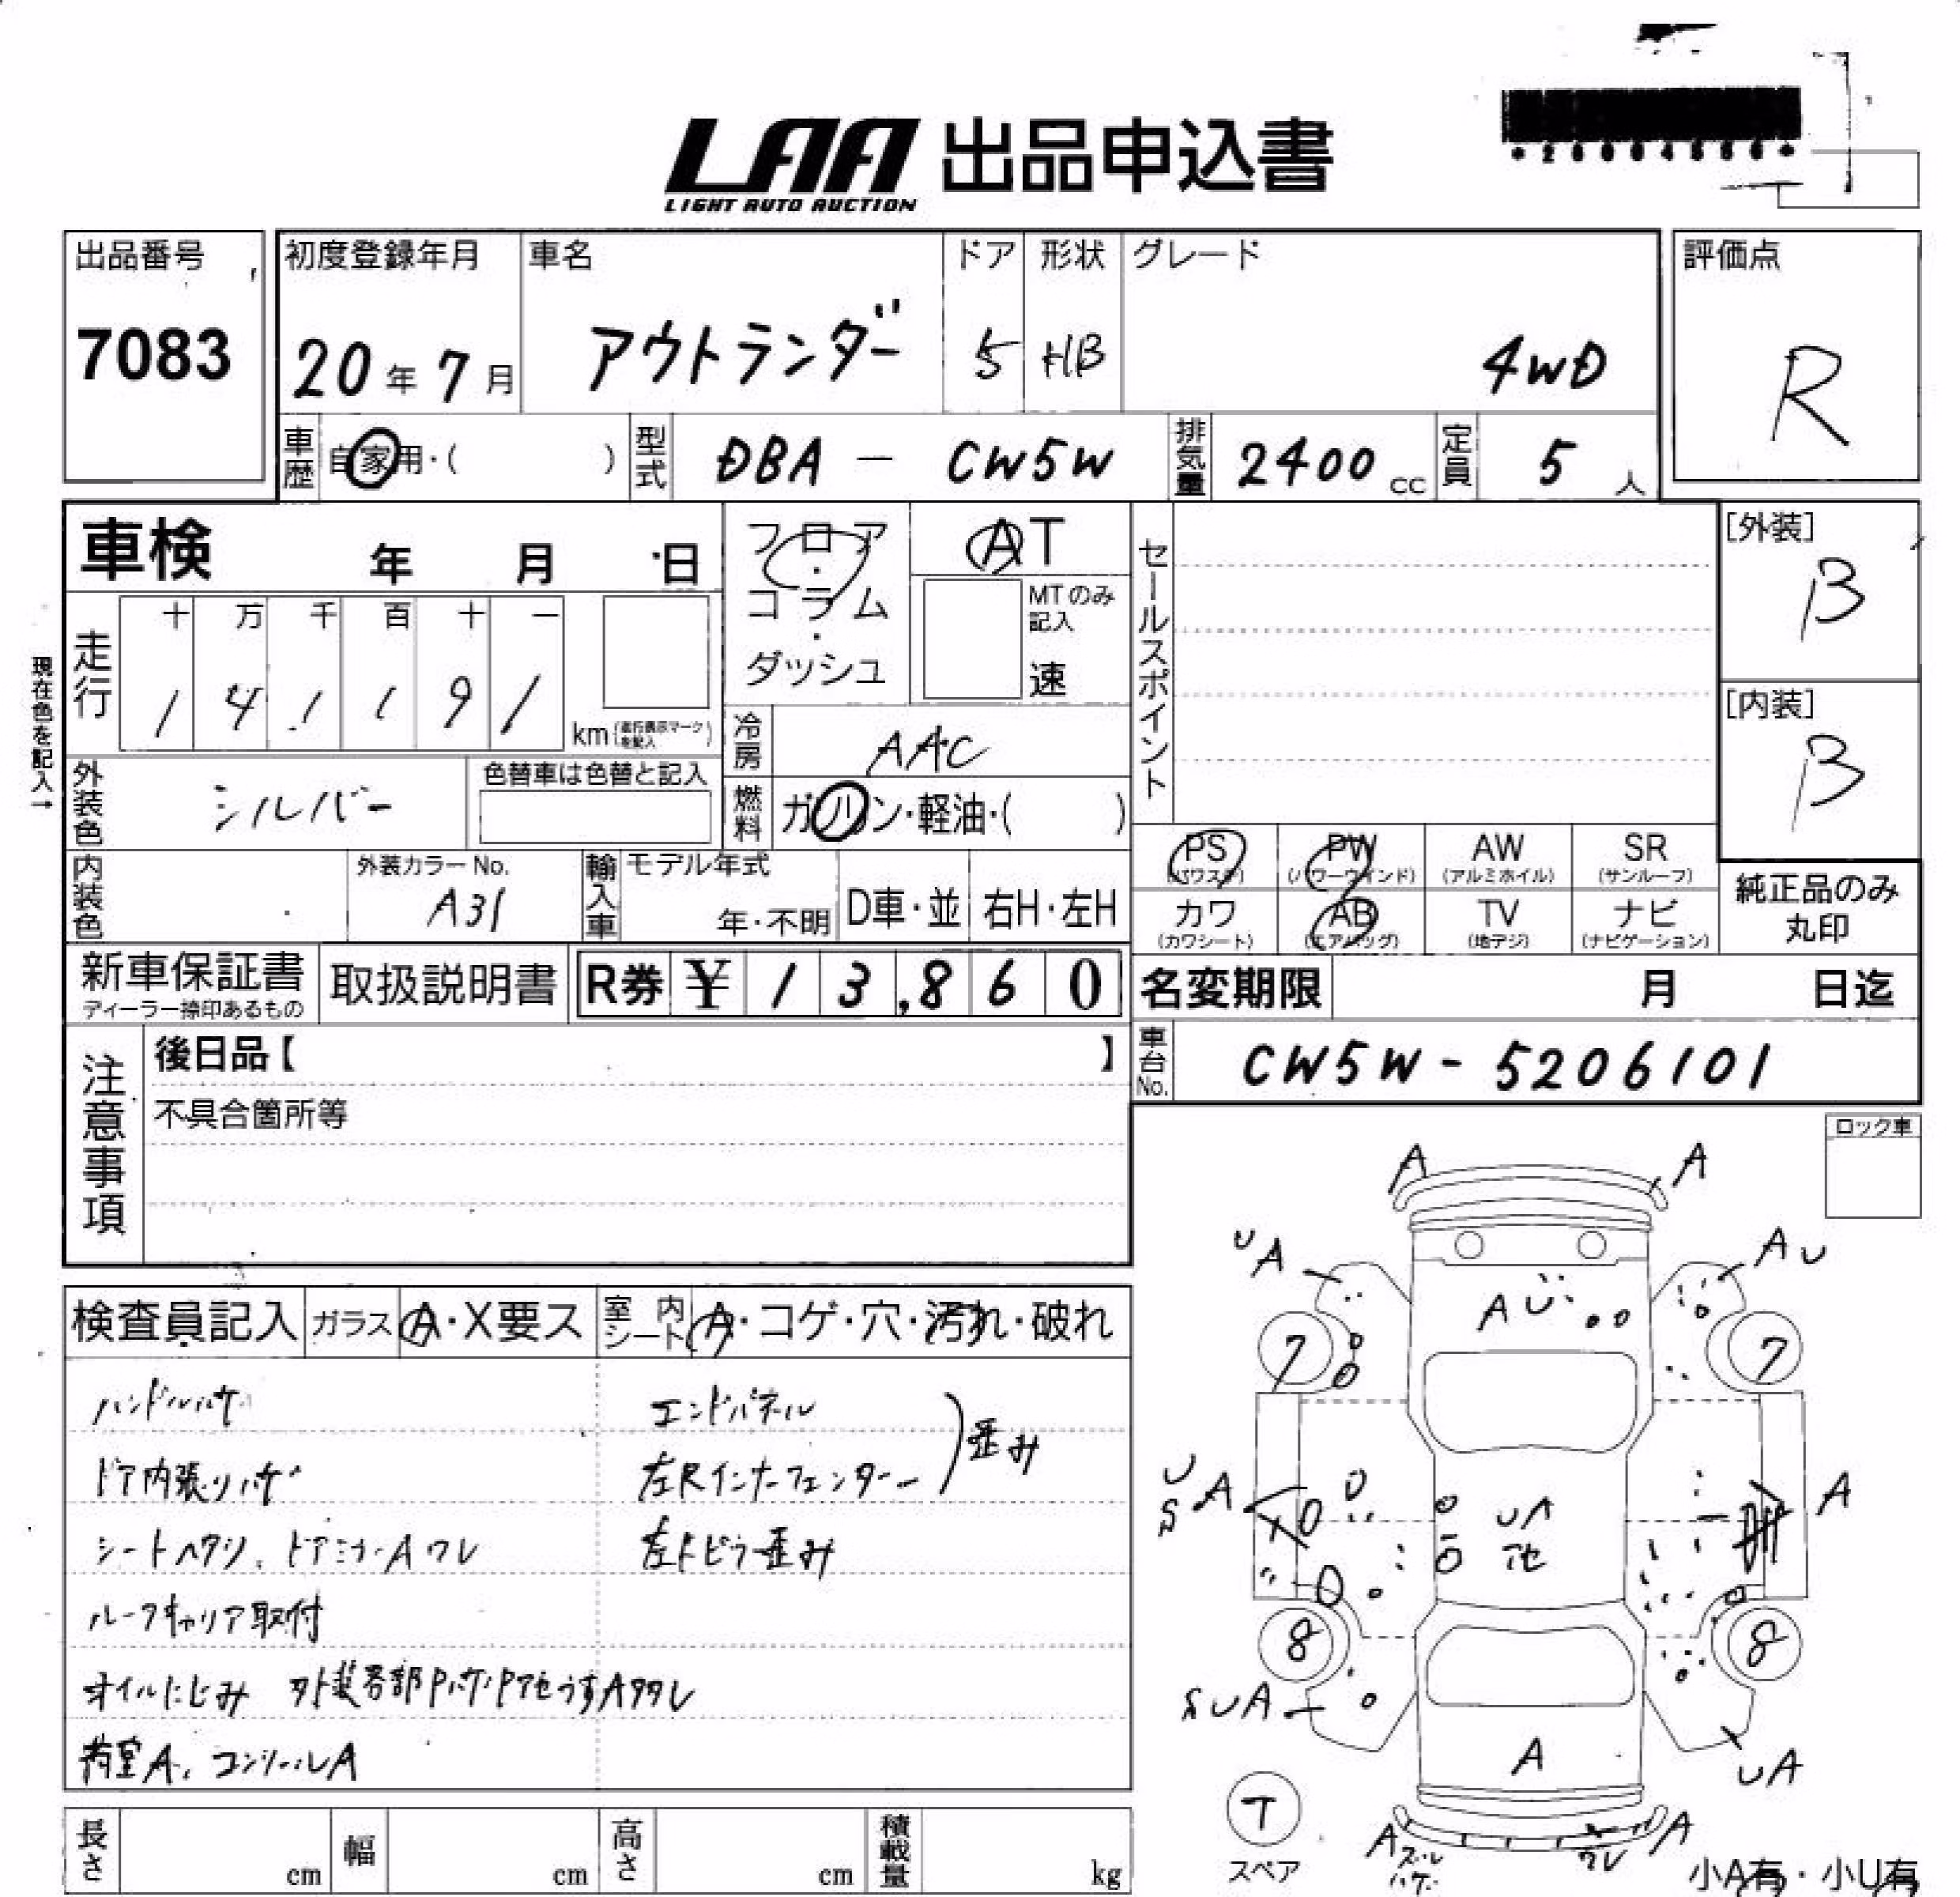 LAA 出品申込書
LIGHT AUTO AUCTION
出品番号 初度登録年月 車名 ドア 形状 グレード 評価点
7083 20年 7月 アウトランダー 5 HB 4WD R
車歴 自家用・( ) 型式 DBA - CW5W 排気量 2400 cc 定員 5 人
車検 年 月 日 フロア・コラム・ダッシュ AT セールスポイント [外装] B
MTのみ記入 速
現在色を記入→
走行 十 万 千 百 十 一
1 4 1 1 9 1 km (走行表示マークを記入)
冷房 AAC [内装] B
外装色 シルバー 色替車は色替と記入 燃料 ガソリン・軽油・( )
PS (パワステ) PW (パワーウィンド) AW (アルミホイル) SR (サンルーフ)
内装色 外装カラーNo. A31 輸入車 モデル年式 年・不明 D車・並 右H・左H
カワ (カワシート) AB (エアバッグ) TV (地デジ) ナビ (ナビゲーション) 純正品のみ丸印
新車保証書 ディーラー捺印あるもの 取扱説明書 R券 ¥ 13,860 名変期限 月 日迄
注意事項 後日品【 】 車台No. CW5W-5206101
不具合箇所等
ロック車
検査員記入 ガラス A・X要ス 室内シート A・コゲ・穴・汚れ・破れ
ハンドルハゲ エンドパネル
ドア内張りハゲ 左Rインナーフェンダー 歪み
シートヘタリ、ドアミラーAワレ 左Fピラー歪み
ルーフキャリア取付
オイルにじみ 外装各部Pハゲ・Pアセうす
荷室A、コンソールA
A A
UA AU
AU
7 7
U A UA A
S アセ
8 8
SUA
A UA
T
スペア
A A
ワレ
小A有・小U有
長さ cm 幅 cm 高さ cm 積載量 kg